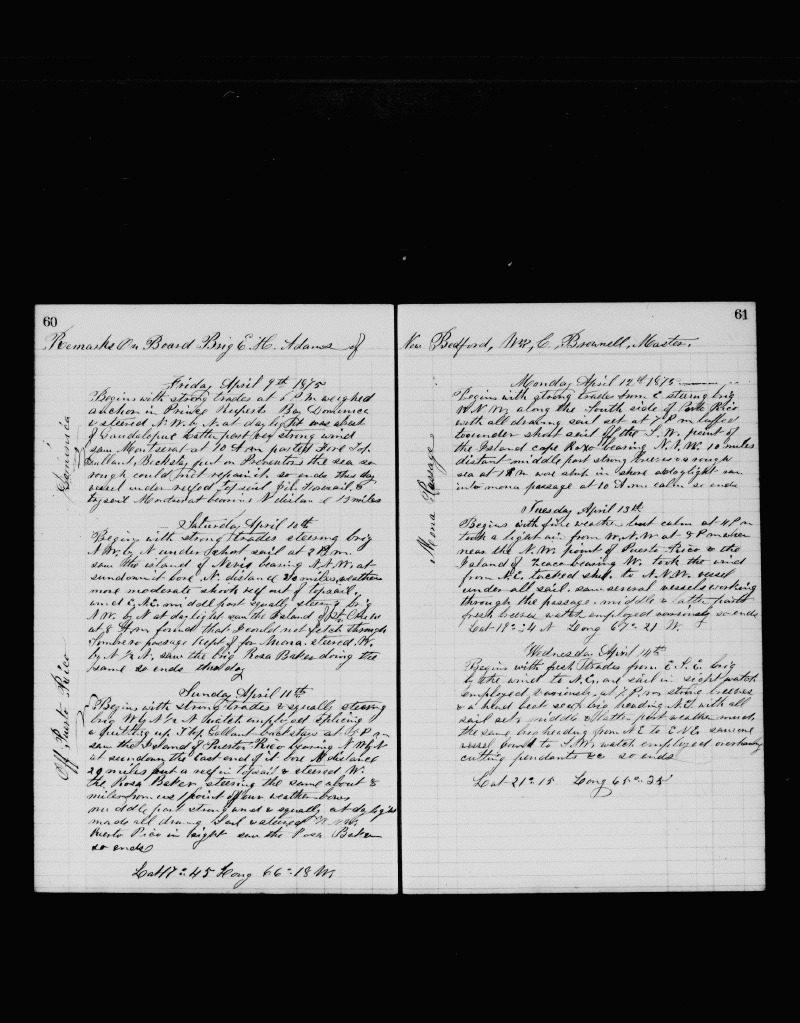 60
Remarks On Board Brig E. H. Adams of
Dominica
Friday April 9th 1875
Begins with strong trades at 5 P.M. weighed
anchor in Prince Ruperts Bay Dominica
& steered N.W. by N. at daylight was abreast
of Guadaloupe Latter part very strong wind
saw Montserat at 10 A.m parted Fore Top
Gallant Backstay put on Preventer the sea so
rough could not repair it. so ends this day
vessel under reefed Topsail jib Foresail &
trysail Montserat bearing N distance 15 miles
Saturday April 10th
Begins with strong trades steering brig
N.W. by N under short sail at 2 P.m.
saw the island of Nevis bearing N.N.W. at
sundown it bore N. distance 20 miles, weather
more moderate shook reef out of topsail,
wind E.N.E. middle part squally steering brig
N.W. by N at daylight saw the Island of St. Croix
at 8 A.m found that I could not fetch through
Sombrero passage Kept off for Mona. steered W.
by N ½ N. saw the brig Rosa Baker doing the
same so ends this day
Off Puerto Rico
Sunday April 11th
Begins with strong trades & squally steering
brig W by N ½ N watch employed splicing
& fitting up F top Gallant backstays at
saw the Island of Puerto Rico bearing N.W by N
at sundown the East end of it bore N distance
20 miles put a reef in topsail & steered W.
the Rosa Baker steering the same about 8
miles from us 1 point off our weather bow
middle part strong wind & squally at daylight
made all drawing sail & steered W.N.W.
Puerto Rico in sight saw the Rosa Baker
so ends
Lat 17°-45 Long 66°-18 W,
61
New Bedford, Wm, C. Brownell, Master.
Mona Passage
Monday April 12th 1875
Begins with strong trades from E steering brig
W.N.W, along the South side of Porto Rico
with all drawing sail set at 7 P.m luffed
to under short sail off the S.W. point of
the Island cape Roxo bearing N.N.W. 10 miles
distant middle part strong breeses & rough
sea at 1 A.M wore ship in shore at daylight ran
into mona passage at 10 A.m calm so ends
Tuesday April 13th
Begins with fine weather but calm at 4 P m
took a light air from W.N.W at 8 P.m when
near the N.W. point of Puerto Rico & the
Island of Zeaco bearing W. took the wind
from N.E. tacked ship to N.N.W. vessel
under all sail. saw several vessels working
through the passage. middle & latter parts
fresh breeses watch employed variously so ends
Lat 18°-34 N Long 67°-21 W
Wednesday April 14th
Begins with fresh trades from E.S.E. brig
by the wind to N.E. one sail in sight watch
employed variously. at 7 P.m strong breeses
& a head beat sea brig heading N.E with all
sail set, middle & latter part weather much
the same brig heading from N.E to E.N.E. saw one
vessel bound to S.W. watch employed overhauling
cutting pendants &c so ends
Lat 21°-15 Long 65°-35